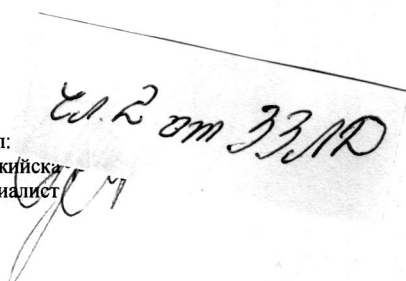 чл. 2 от ЗЗЛД
л:
кийска
иалист